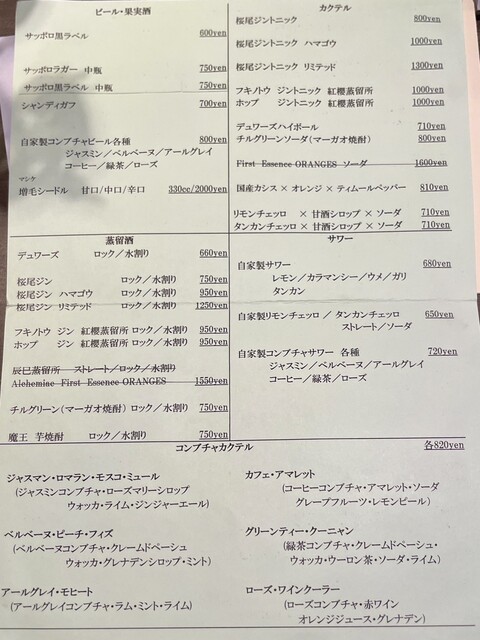 ビール・果実酒
サッポロ黒ラベル 600yen
サッポロラガー 中瓶 750yen
サッポロ黒ラベル 中瓶 750yen
シャンディガフ 700yen
自家製コンブチャビール各種 800yen
ジャスミン／ベルベーヌ／アールグレイ
コーヒー／緑茶／ローズ
マシケ
増毛シードル 甘口/中口/辛口 330cc/2000yen
カクテル
桜尾ジントニック 800yen
桜尾ジントニック ハマゴウ 1000yen
桜尾ジントニック リミテッド 1300yen
フキノトウ ジントニック 紅櫻蒸留所 1000yen
ホップ ジントニック 紅櫻蒸留所 1000yen
デュワーズハイボール 710yen
チルグリーンソーダ(マーガオ焼酎) 800yen
First Essence ORANGES ソーダ 1600yen
国産カシス × オレンジ × ティムールペッパー 810yen
リモンチェッロ × 甘酒シロップ × ソーダ 710yen
タンカンチェッロ × 甘酒シロップ × ソーダ 710yen
蒸留酒
デュワーズ ロック／水割り 660yen
桜尾ジン ロック／水割り 750yen
桜尾ジン ハマゴウ ロック／水割り 950yen
桜尾ジン リミテッド ロック／水割り 1250yen
フキノトウ ジン 紅櫻蒸留所 ロック／水割り 950yen
ホップ ジン 紅櫻蒸留所 ロック／水割り 950yen
辰巳蒸留所 ストレート／ロック／水割り
Alchemine First Essence ORANGES 1550yen
チルグリーン(マーガオ焼酎) ロック／水割り 750yen
魔王 芋焼酎 ロック／水割り 750yen
サワー
自家製サワー 680yen
レモン／カラマンシー／ウメ／ガリ
タンカン
自家製リモンチェッロ ／ タンカンチェッロ 650yen
ストレート／ソーダ
自家製コンブチャサワー 各種 720yen
ジャスミン／ベルベーヌ／アールグレイ
コーヒー／緑茶／ローズ
コンブチャカクテル 各820yen
ジャスマン・ロマラン・モスコ・ミュール
(ジャスミンコンブチャ・ローズマリーシロップ
ウォッカ・ライム・ジンジャーエール)
ベルベーヌ・ピーチ・フィズ
(ベルベーヌコンブチャ・クレームドペーシュ
ウォッカ・グレナデンシロップ・ミント)
アールグレイ・モヒート
(アールグレイコンブチャ・ラム・ミント・ライム)
カフェ・アマレット
(コーヒーコンブチャ・アマレット・ソーダ
グレープフルーツ・レモンピール)
グリーンティー・クーニャン
(緑茶コンブチャ・クレームドペーシュ・
ウォッカ・ウーロン茶・ソーダ・ライム)
ローズ・ワインクーラー
(ローズコンブチャ・赤ワイン
オレンジジュース・グレナデン)